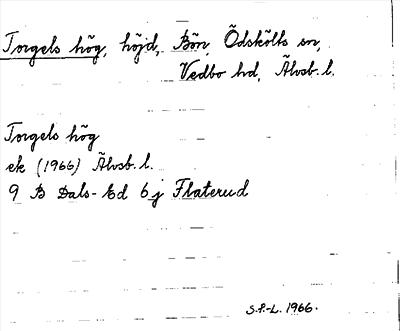 Torgels hög, höjd, Bön, Ödskölts sn,
Vedbo hd, Älvsb. l.
Torgels hög
ek (1966) Älvsb. l.
9 B Dals-Ed 6 j Flaterud
S.P.-L. 1966.